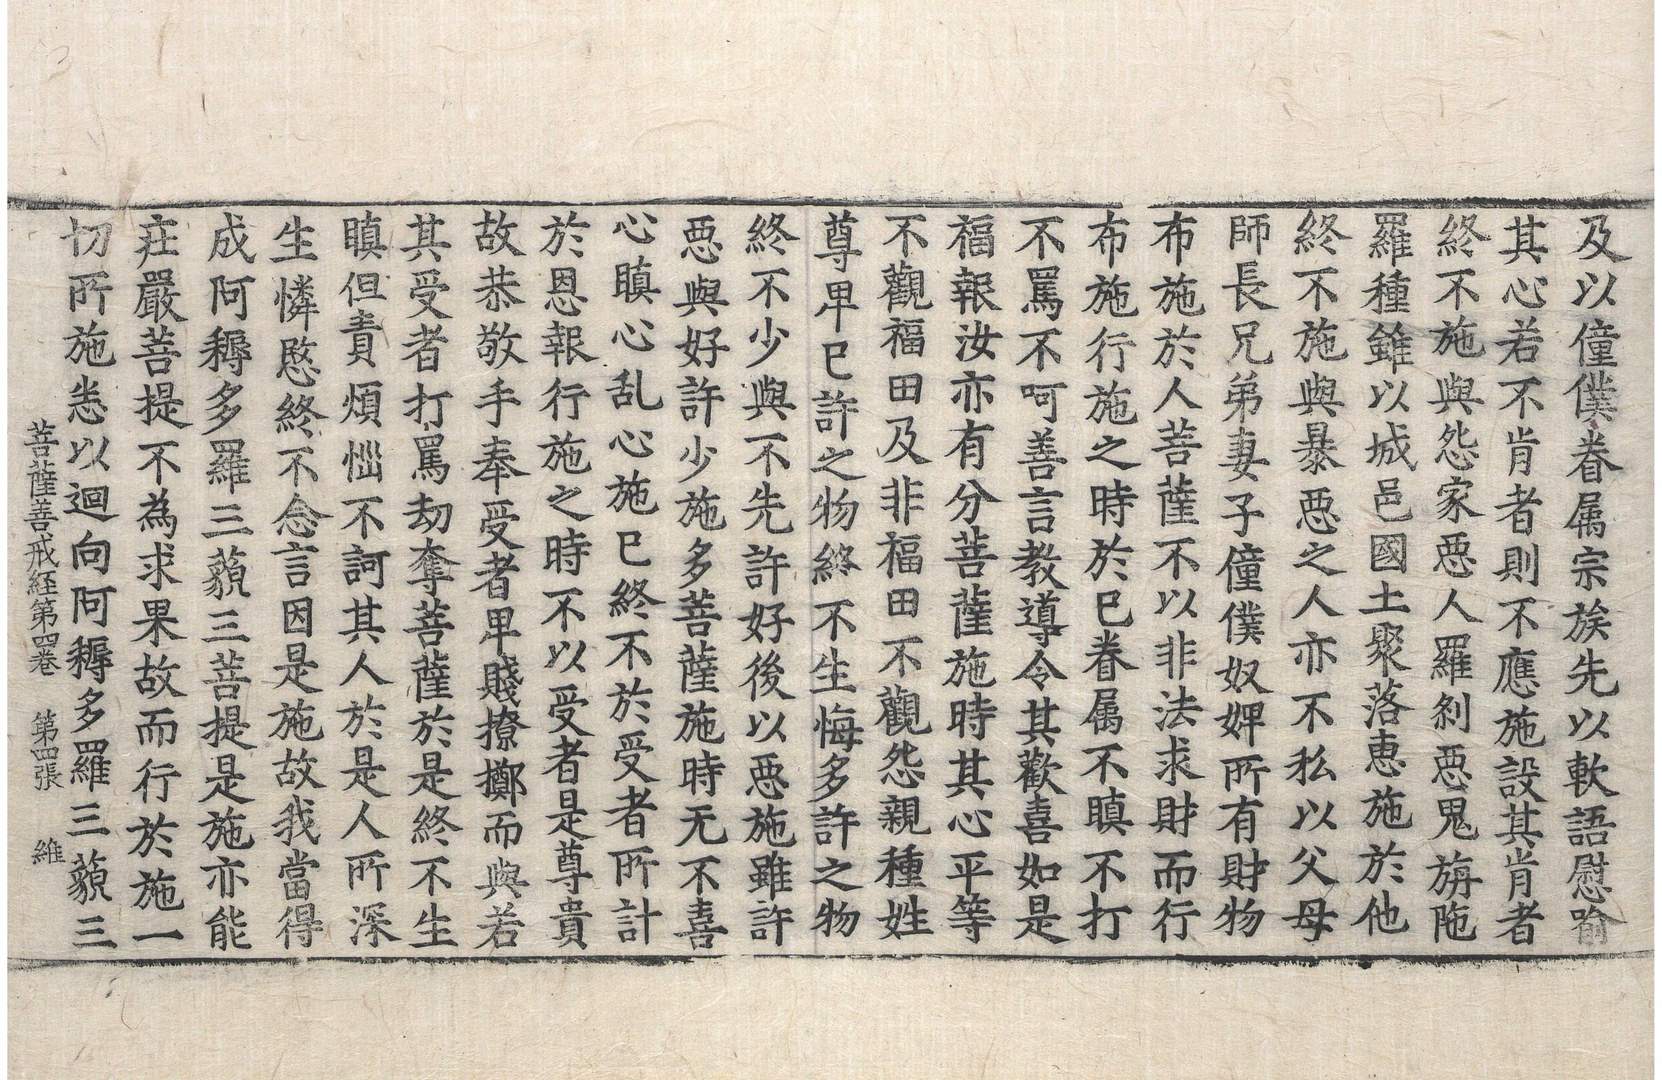 及以僮僕眷属宗族先以軟語慰喻
其心若不肯者則不應施設其肯者
終不施與怨家惡人羅刹惡鬼旃陁
羅種雖以城邑國土聚落惠施於他
終不施與暴惡之人亦不私以父母
師長兄弟妻子僮僕奴婢所有財物
布施於人菩薩不以非法求財而行
布施行施之時於已眷属不瞋不打
不罵不呵善言教導令其歡喜如是
福報汝亦有分菩薩施時其心平等
不觀福田及非福田不觀怨親種姓
尊卑已許之物終不生悔多許之物
終不少與不先許好後以惡施雖許
惡與好許少施多菩薩施時无不喜
心瞋心乱心施已終不於受者所計
於恩報行施之時不以受者是尊貴
故恭敬手奉受者卑賤撩擲而與若
其受者打罵劫奪菩薩於是終不生
瞋但責煩惱不訶其人於是人所深
生憐愍終不念言因是施故我當得
成阿耨多羅三藐三菩提是施亦能
莊嚴菩提不為求果故而行於施一
切所施恚以迴向阿耨多羅三藐三
菩薩善戒経第四卷 第四張 維